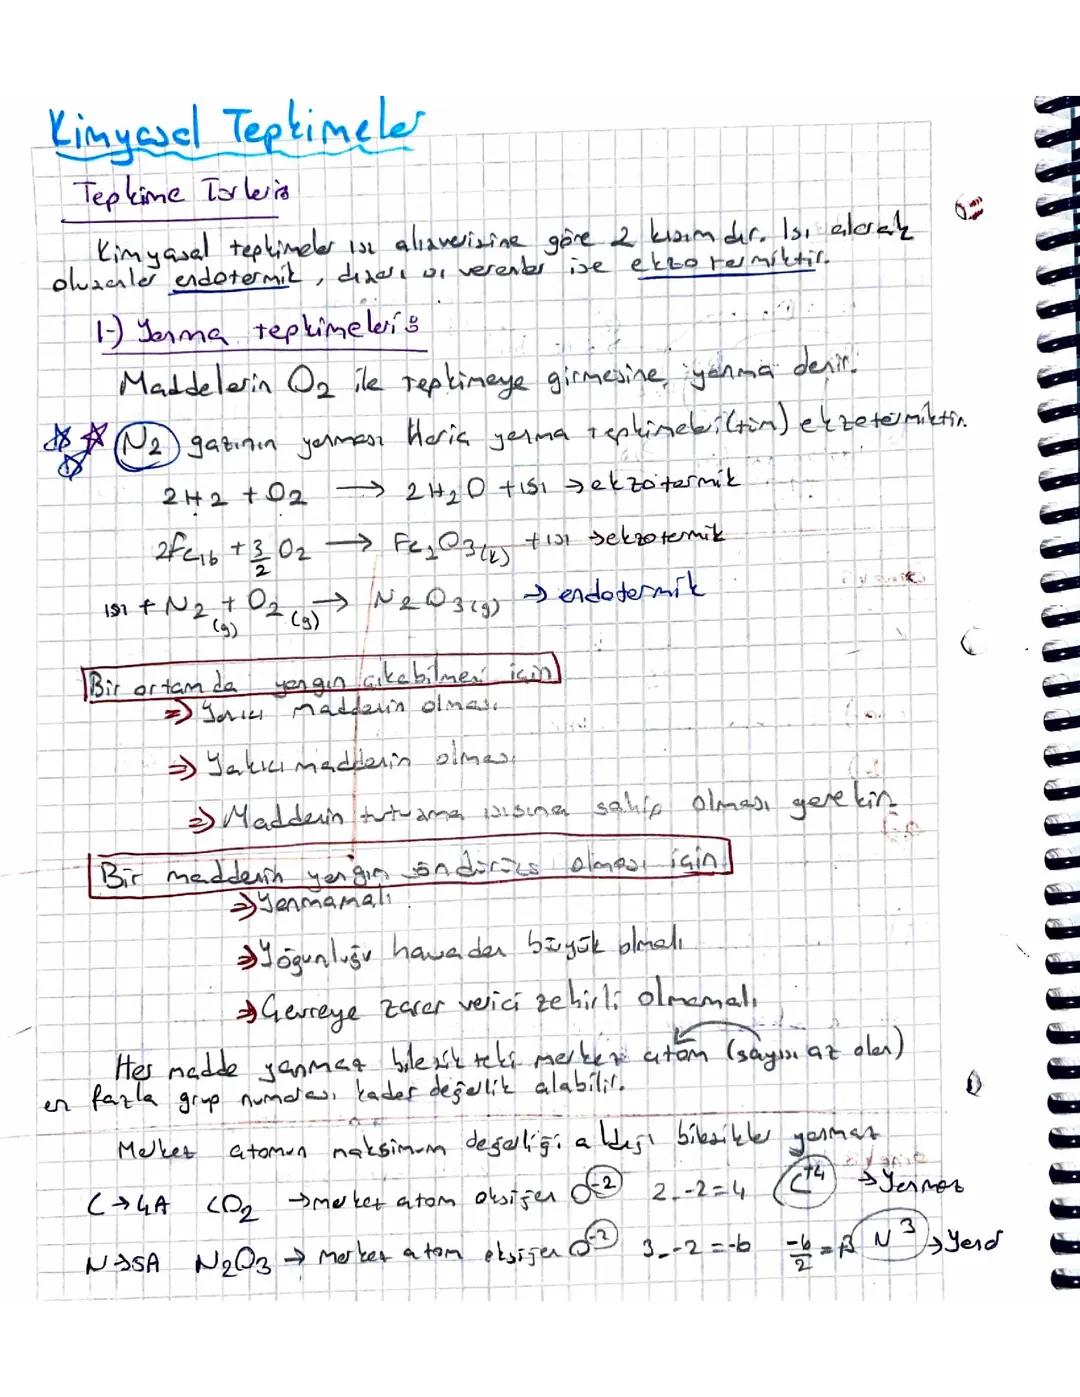 Kimyasal Tepkimeler
Tepkime Türleri:
Kimyasal tepkimeler ısı alışverişine göre 2 kısımdır. Isı alarak
oluşanlar endotermik, dışarı ısı verenler ise ekzotermiktir.
1-) Yanma tepkimeleri:
Maddelerin O2 ile tepkimeye girmesine yanma denir.
N2 gazının yanması Hariç yanma tepkimeleri (tüm) ekzotermiktir.
2H2 + O2 → 2H2O + ısı → ekzotermik
2Fe(k) + 3/2 O2 → Fe2O3(k) + ısı → ekzotermik
ısı + N2(g) + O2(g) → N2O3(g) → endotermik
Bir ortamda yangın çıkabilmesi için
⇒ Yanıcı maddenin olması
⇒ Yakıcı maddenin olması
⇒ Maddenin tutuşma ısısına sahip olması gerekir
Bir maddenin yangın söndürücü olması için
⇒ Yanmamalı
⇒ Yoğunluğu havadan büyük olmalı
⇒ Çevreye zarar verici zehirli olmamalı
Her madde yanmaz bileşikteki merkez atom (sayısı az olan)
en fazla grup numarası kadar değerlik alabilir.
Merkez atomun maksimum değerliği aldığı bileşikler yanmaz
C → 4A CO2 → merkez atom oksijen O-2 2.-2=4 C+4 → Yanmaz
N → 5A N2O3 → merkez atom oksijen O-2 3.-2=-6 -6/2=3 N3 → Yanar